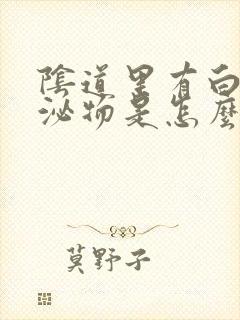 陰道里有白
泌物是怎麼
莫野子